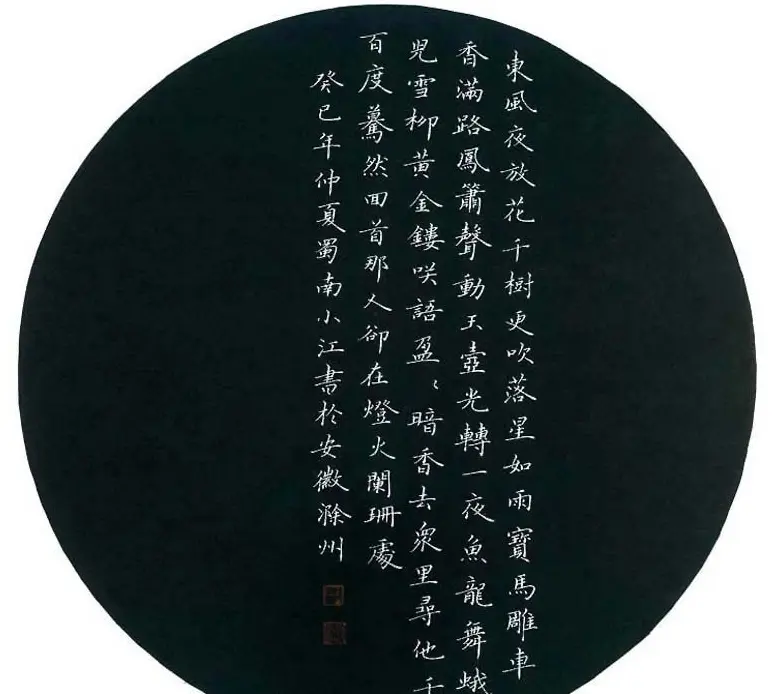 東風夜放花千樹更吹落星如雨寶馬雕車
香滿路鳳簫聲動玉壺光轉一夜魚龍舞蛾
兒雪柳黃金鏤咲語盈〻暗香去衆里尋他千
百度驀然回首那人卻在燈火闌珊處
癸巳年仲夏蜀南小江書於安徽滁州